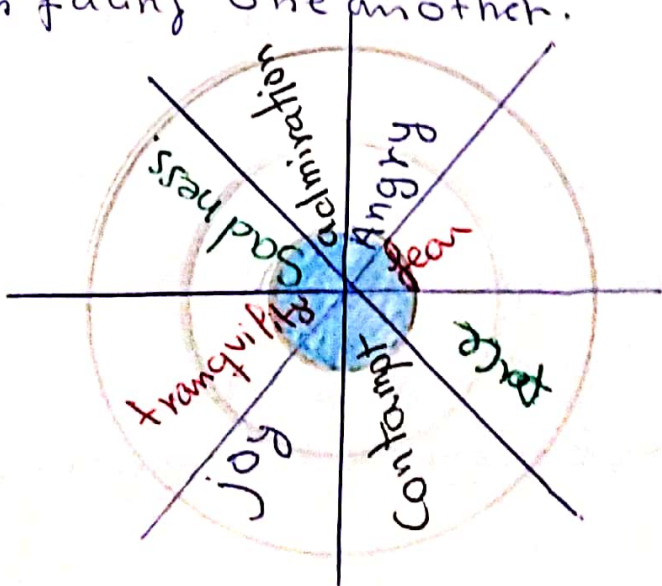 facing one another.
admiration
Angry
fear
Peace
Contampt
Joy
tranquility
Sadness.